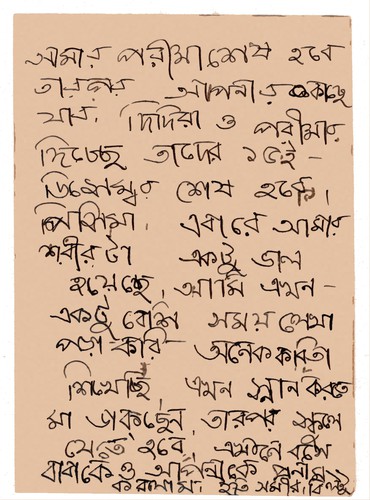 আমার পরীক্ষা শেষ হবে
তারপর আপনার কাছে
যাব। দিদিরা ও পরীক্ষার
দিচ্ছে তাদের ১৫ই -
ডিসেম্বর শেষ হবে।
পিসিমা, এবারে আমার
শরীরটা একটু ভাল
হয়েছে, আমি এখন -
একটু বেশি সময় লেখা
পড়া করি - অনেক কবিতা
শিখেছি, এখন স্নান করতে
মা ডাকছেন, তারপর স্কুলে
যেতে হবে, এখানে বসে
বাবাকে ও আপনাকে প্রনাম
করলাম। ইতি সমীর।